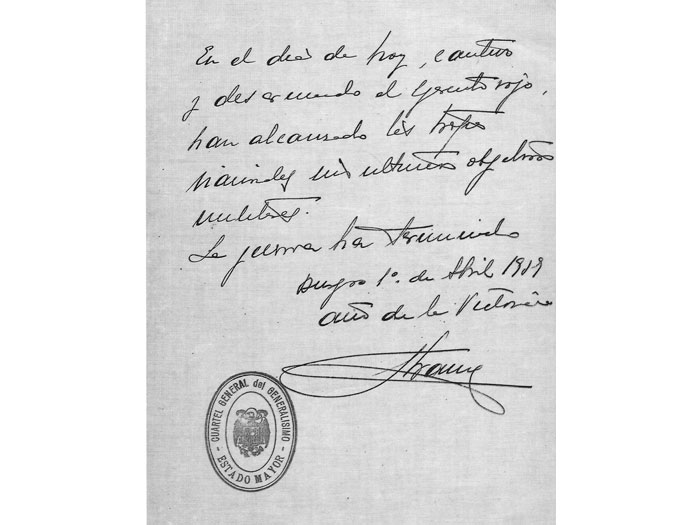 En el dia de hoy, cautivo
y desarmado el Ejercito rojo,
han alcanzado las tropas
nacionales sus ultimos objetivos
militares.
La guerra ha terminado
Burgos 1º. de Abril 1939
año de la Victoria
Franco
- CUARTEL GENERAL del GENERALISIMO -
ESTADO MAYOR